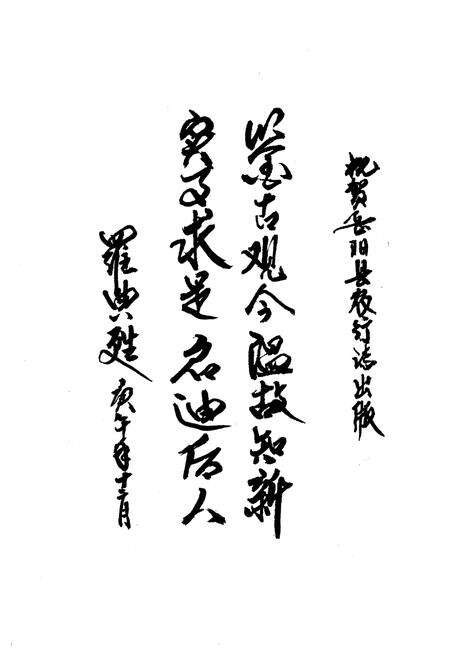 祝贺岳阳县农行志出版
鉴古观今温故知新
实事求是启迪后人
羅典甦 庚午年十二月